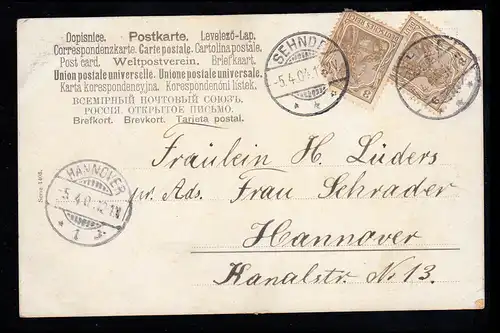 Dopisnice. Postkarte. Levelező-Lap.
Correspondenzkarte. Carte postale. Cartolina postale.
Post card. Weltpostverein. Briefkaart.
Union postale universelle. Unione postale universale.
Karta korespondencyjna. Korespondenční lístek.
ВСЕМІРНЫЙ ПОЧТОВЫЙ СОЮЗЪ.
РОССІЯ. ОТКРЫТОЕ ПИСЬМО.
Brefkort. Brevkort. Tarjeta postal.
SEHNDE
-5.4.0
3
HANNOVER
-5.4.0
1
Serie
Fräulein H. Lüders
pr. Ads. Frau Schrader
Hannover
Kanalstr. No 13.